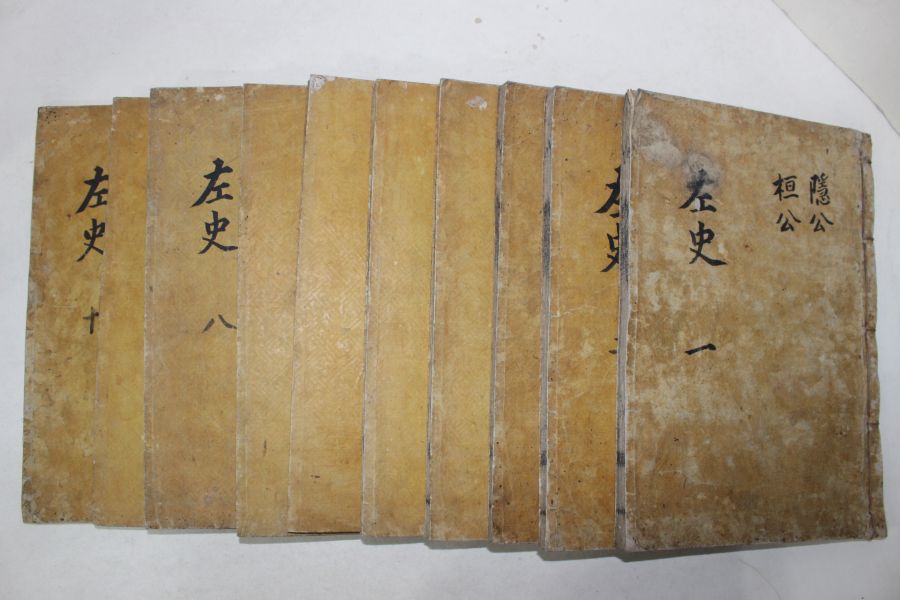 隱公
桓公
左史 一
左史
左史 八
左史 十